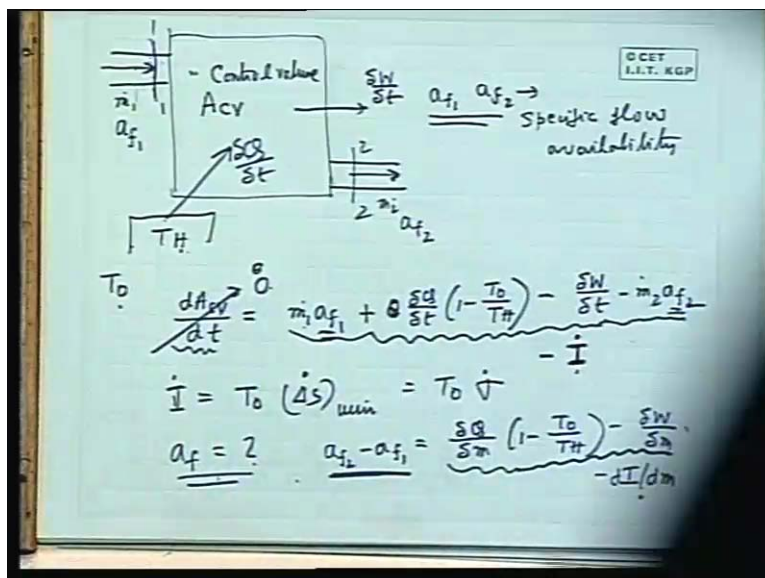 © CET
I.I.T. KGP
1
ṁ₁
1
a_f₁
- Control volume
A_CV
δQ/δt
T_H
δW/δt
2
2
ṁ₂
a_f₂
a_f₁ a_f₂ →
Specific flow
availability
T_0
dA_CV/dt = ṁ₁a_f₁ + δQ/δt (1 - T_0/T_H) - δW/δt - ṁ₂a_f₂
0
- İ
İ = T_0 (Δ̇S)_uni = T_0 σ̇
a_f = ? a_f₂ - a_f₁ = δQ/δm (1 - T_0/T_H) - δW/δm
- dI/dm